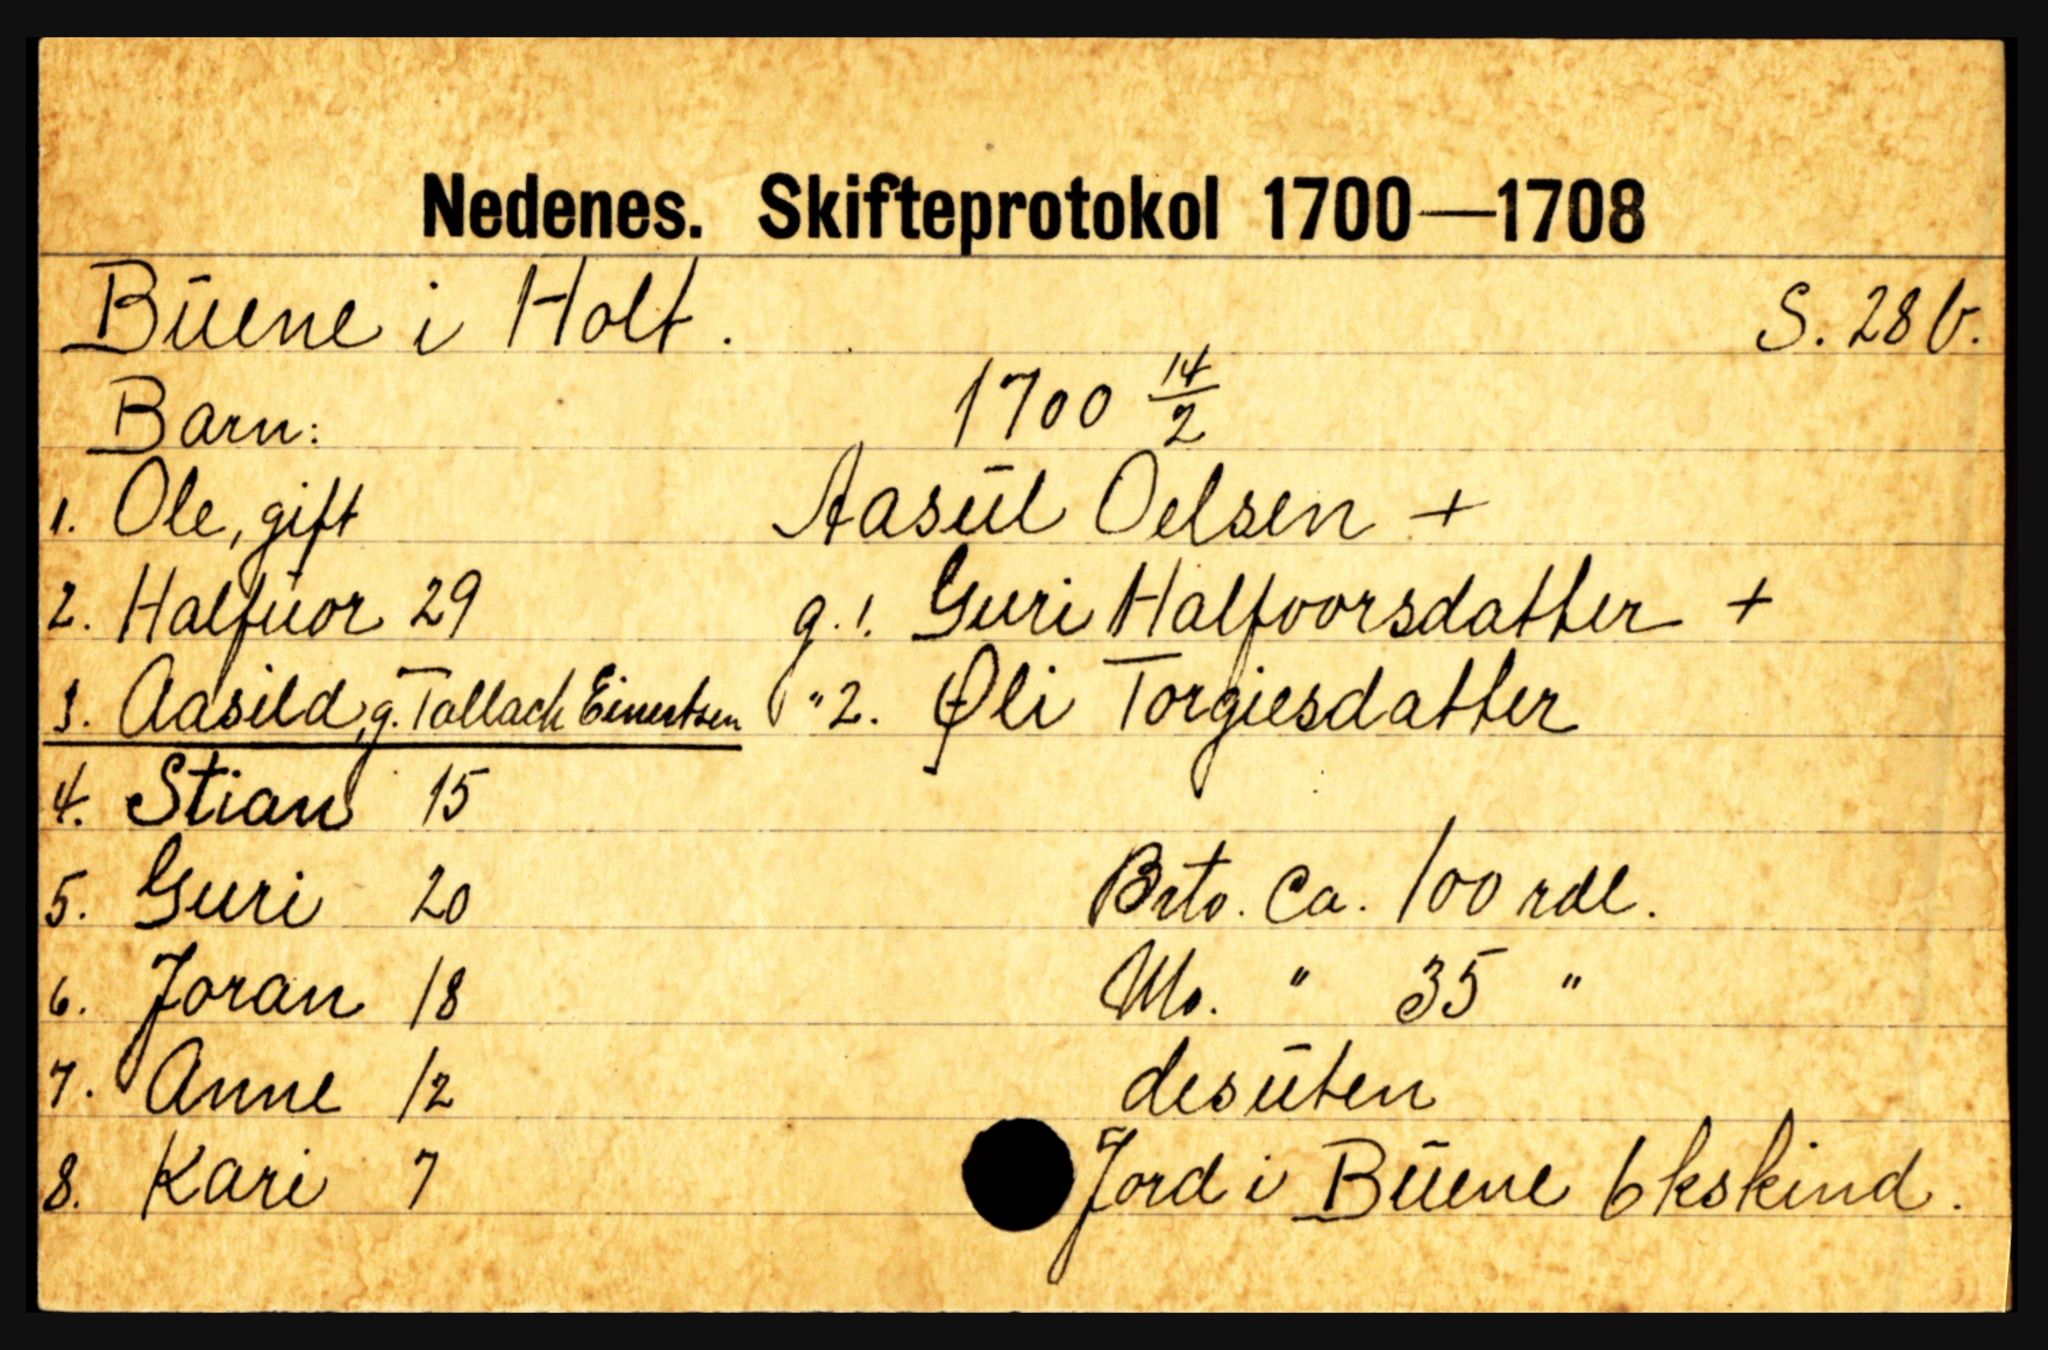 Nedenes. Skifteprotokol 1700—1708
Būene i Holt. S. 28 b.
Barn: 1700 14/2
1. Ole, gift Aasūl Oelsen +
2. Halfūor 29 g. 1. Guri Halfvorsdatter +
3. Aasild, g. Tallach Einertsen " 2. Øli Torgiesdatter
4. Stian 15
5. Guri 20 Brto. Ca. 100 rdl.
6. Joran 18 Mo. " 35 "
7. Anne 12 desūten
8. Kari 7 Jord i Būene 6 kskind.